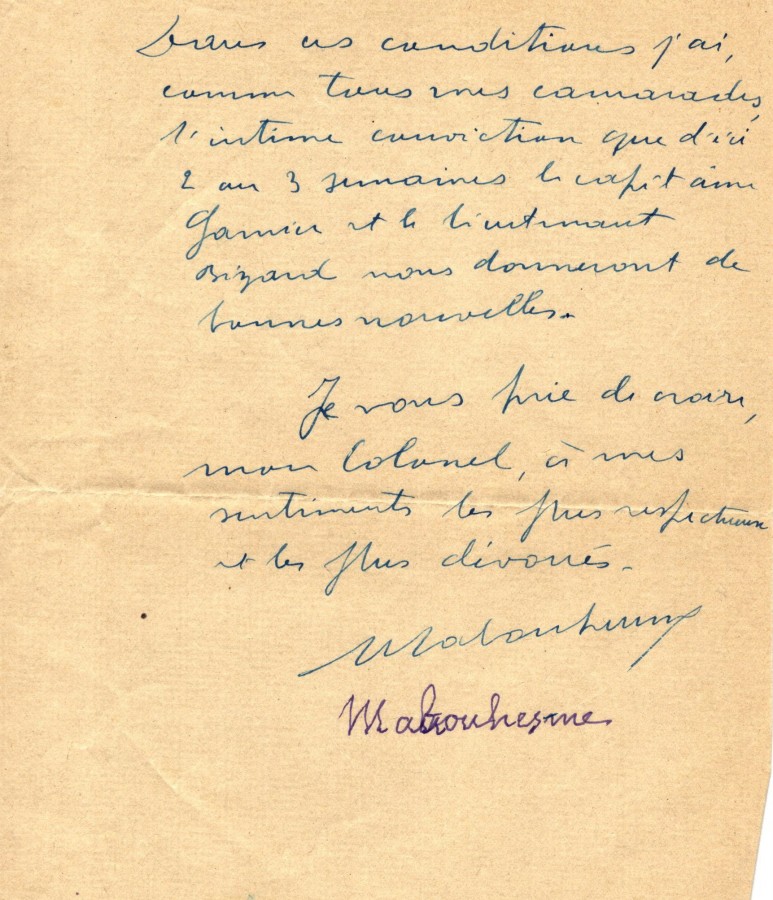 Dans ces conditions j'ai,
comme tous mes camarades,
l'intime conviction que d'ici
2 ou 3 semaines le capitaine
Garnier et le lieutenant
Bizard nous donneront de
bonnes nouvelles.
Je vous prie de croire,
mon Colonel, à mes
sentiments les plus respectueux
et les plus dévoués.